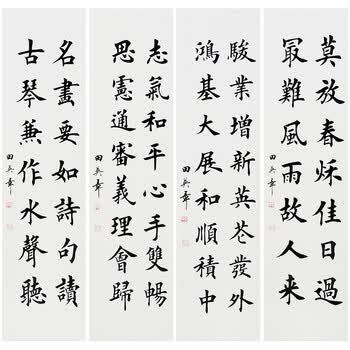 莫放春秋佳日過
最難風雨故人来
田英章
駿業增新英華發外
鴻基大展和順積中
田英章
志氣和平心手雙暢
思慮通審義理會歸
田英章
名畫要如詩句讀
古琴兼作水聲聽
田英章